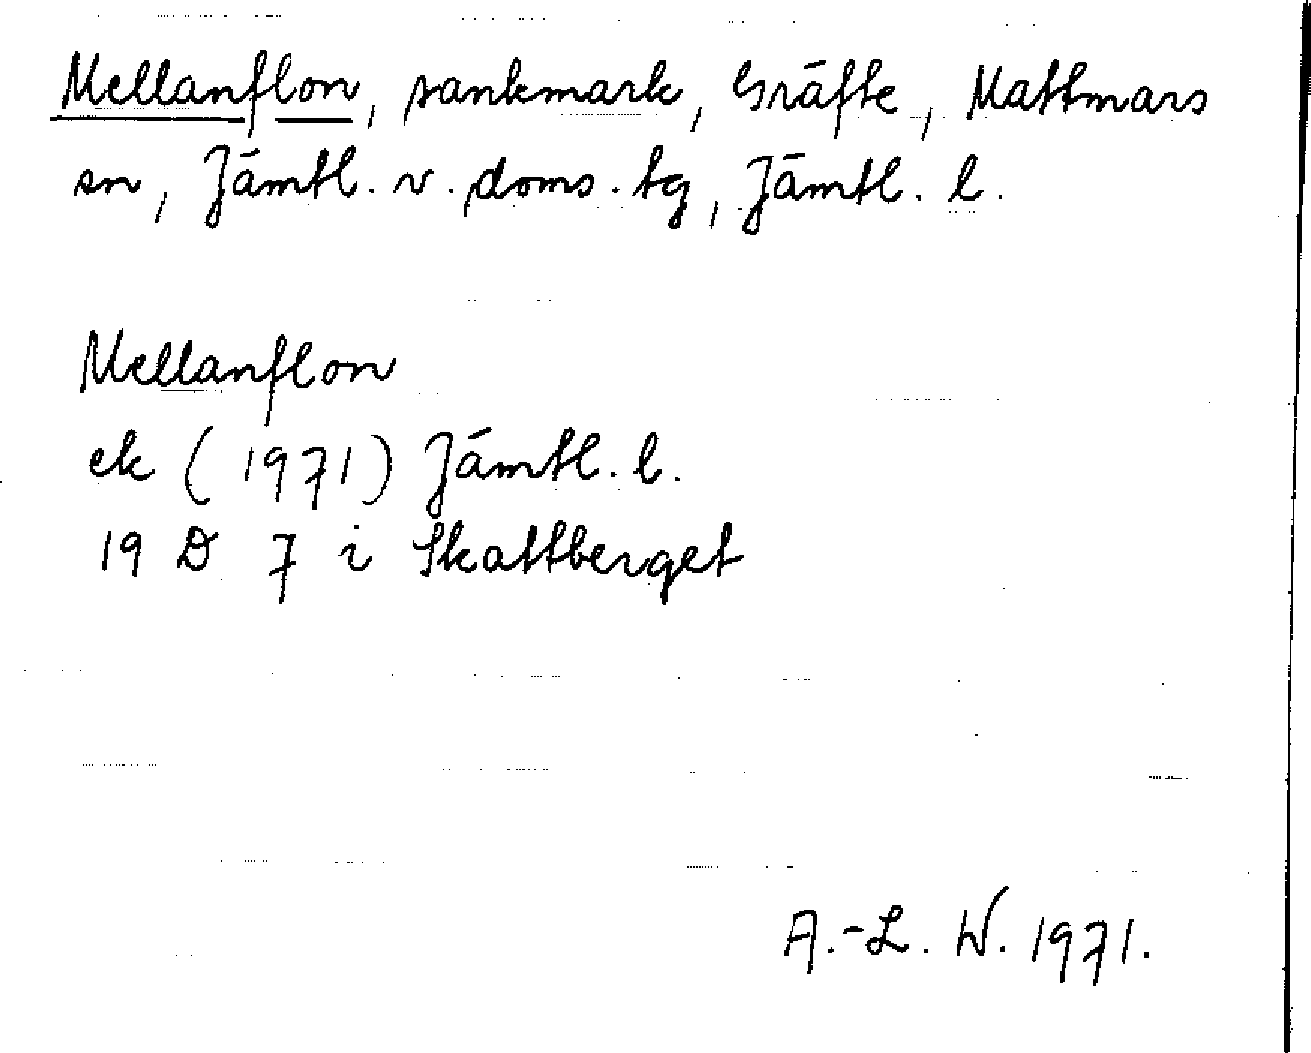 Mellanflon, sankmark, Gräfte, Mattmars
sn, Jämtl. v. doms. tg, Jämtl. l.
Mellanflon
ek (1971) Jämtl. l.
19 D 7 i Skattberget
A.-L. W. 1971.